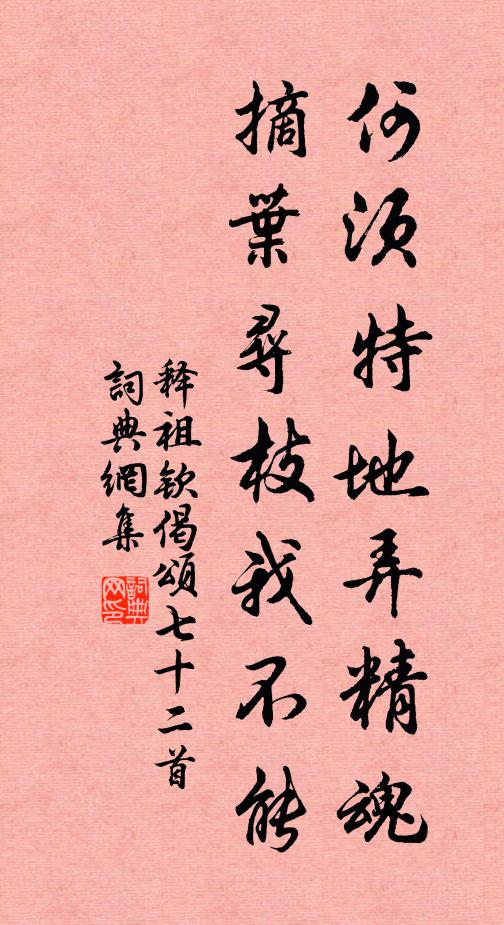 何須特地弄精魂
摘葉尋枝我不能
释祖欽偈頌七十二首
詞典網集
詞典網印